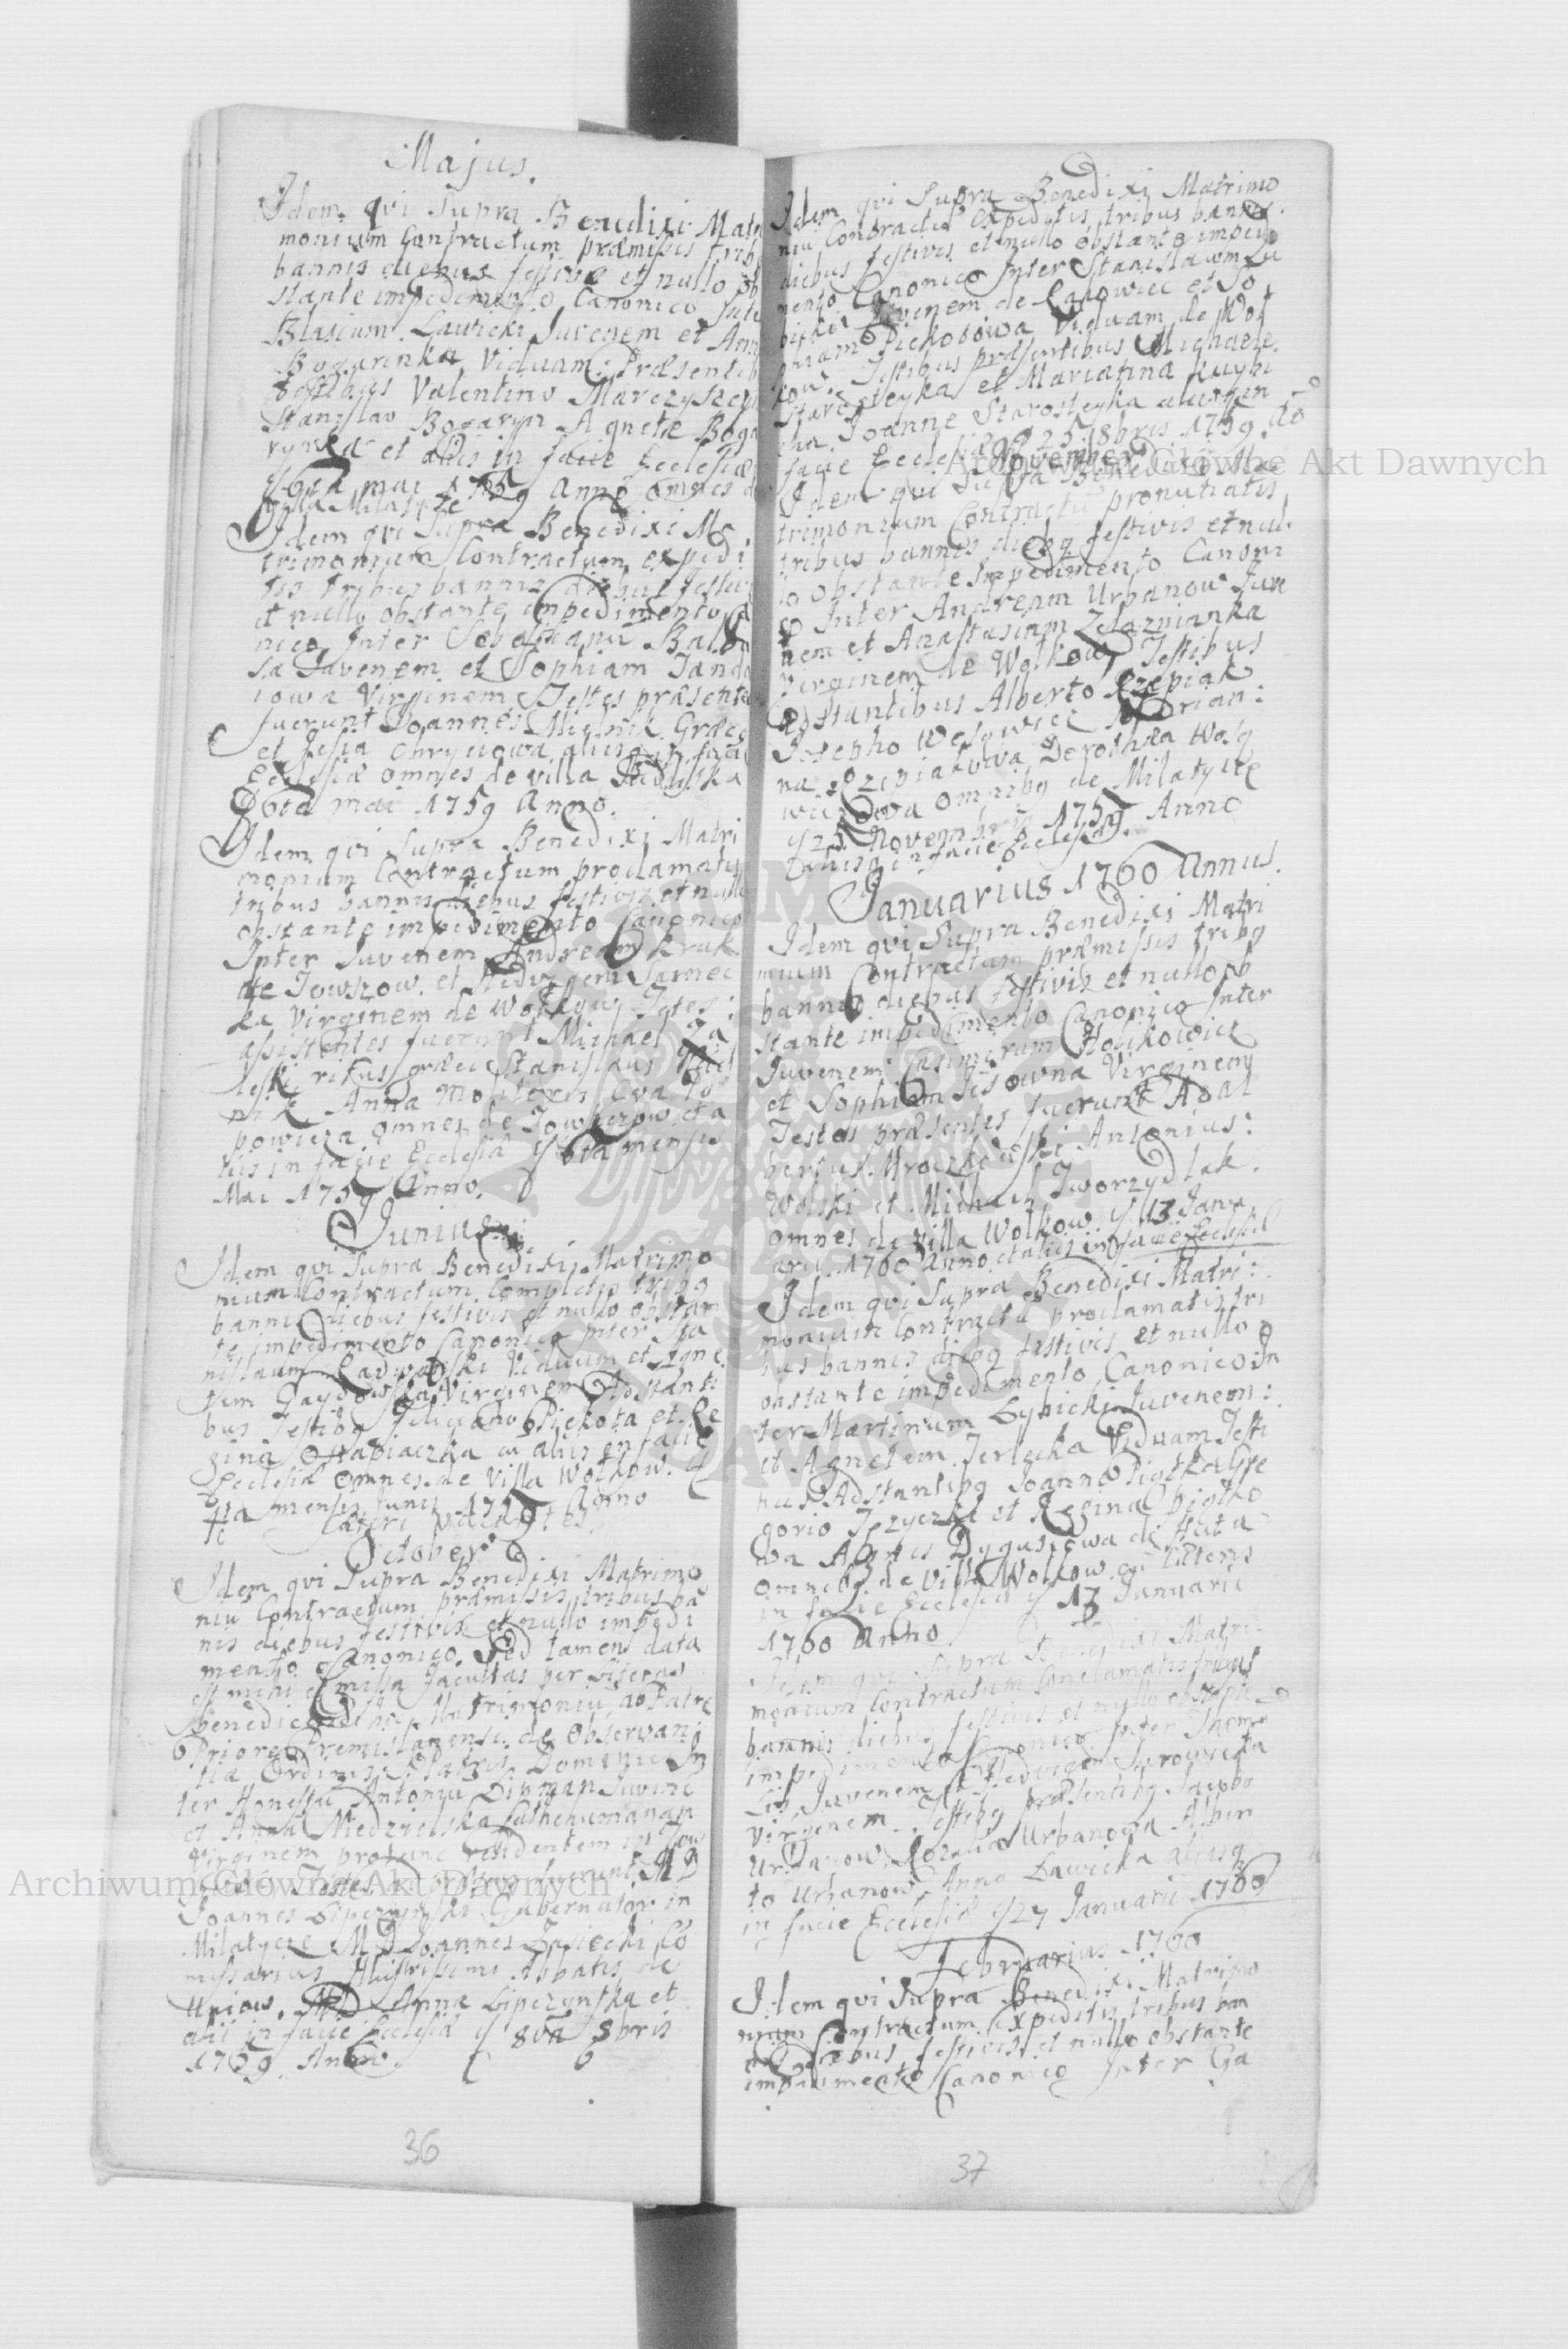 Majus.
Idem qui Supra Benedixi Matri
monium Contractum præmissis trib
bannis diebus festivis et nullo ob
stante impedimento Canonico Inte
Blasium Lawicki Juvenem et Ann
Bogarinka Viduam Præsentib
testibus Valentino Marczyszeyn
Stanislao Bogaryn Agnete Boga
rynska et aliis in facie Ecclesiæ
6ta mai 1759 Anno omnes de
Villa Milatyce
Idem qui Supra Benedixi Ma
trimonium Contractum expedi
tis tribus bannis diebus festivi
et nullo obstante impedimento Ca
nico Inter Sebastianu
sa Juvenem et Sophiam Jando
iowa Virginem Testes præsentes
fuerunt Joannes Mielnik Græco
et Jesia Chryciowa aliisq in facie
Ecclesiæ omnes de villa
6ta mai 1759 Anno.
Idem qui Supra Benedixi Matri
monium Contractum proclamatis
tribus bannis diebus festivis et nullo
obstante impedimento Canonico
Inter Juvenem Andream Kruk
de Towszow et Hedvigem Sarnec
ka Virginem de Wolkow Testes:
assistentes fuerunt Michael Za
leski ritus græci Stanislaus
nik Anna Eva Po
powicza omnes de Towszow et a
liis in facie Ecclesiæ 6ta mensis
Mai 1759 Anno.
Junius
Idem qui Supra Benedixi Matrimo
nium Contractum Completis tribq
bannis diebus festivis et nullo obstan
te impedimento Canonico Inter Sta
nislaum Ladwanski Viduum et Agne
tem Gaydowska Virginem Adstanti
bus Testibq Feliciano Piekota et Re
gina Hapiaczka cu aliis in facie
Ecclesiæ omnes de Villa Wolkow.
4ta mensis Junii 1759 Anno
Cæteri vacantes
October
Idem qui Supra Benedixi Matrimo
niu Contractum præmissis tribus ba
nis diebus festivis et nullo impedi
mento Canonico. Sed tamen data
est mihi et missa facultas per literas
Benedicendi hoc Matrimoniu ab Patre
Priore Premislaviensi de Observan
tia Ordinis S. Patris Dominici In
ter Honestu Antoniu Dipman Juvene
et Anna Niedzielska Cathecumanam
Virginem protunc residentem in Tow
szow Testes fuerunt M D
Joannes Lipczynski Gubernator in
Milatyce M D Joannes Zasiecki Co
missarius Illustrissimi Abbatis de
Uniow. M D Anna Lipczynska et
alii in facie Ecclesiæ 8va 8bris
1759 Anno.
36
Idem qui Supra Benedixi Matrimo
niu Contractu Expeditis tribus bannis
diebus festivis et nullo obstante impedi
mento Canonico Inter Stanislaum Lu
bicki Juvenem de Canowiec et So
phiam Piekosowa Viduam de Wol
kow. Testibus præsentibus Michaele
Starosteyka et Mariatina
cha Joanne Starosteyka aliisq in
facie Ecclesiæ 25 8bris 1759 Ao
November
Idem qui Supra Benedixi Ma
trimonium Contractu pronutiatis
tribus bannis diebq festivis et nul
lo obstante Impedimento Canoni
co Inter Andream Urbanow Juve
nem et Anastasiam Zelaznianka
Virginem de Wolkow Testibus
Adstantibus Alberto Rzepiak
Josepho Wesqwicz Marian:
na Rzepiakowa Dorothæa Wosq
wiczowa omnibq de Milatycze
25 Novembris 1759 Anno
aliisq in facie Ecclesiæ.
Januarius 1760 Annus.
Idem qui Supra Benedixi Matri
mium Contractam præmissis tribq
bannis diebus festivis et nullo ob
stante impedimento Canonico Inter
Juvenem Casimirum Holikowicz
et Sophiam Lisowna Virginem
Testes præsentes fuerunt Adal
bertus Mroczkowski Antonius:
Wolski et Michael Tworzydlak.
omnes de villa Wolkow 13 Janu
arii 1760 Anno et aliis in facie Ecclesiæ
Idem qui Supra Benedixi Matri:
monium Contractu proclamatis tri
bus bannis diebq festivis et nullo
obstante impedimento Canonico In
ter Martinum Lybicki Juvenem:
et Agnetem Jerlecka Viduam Testi
bus Adstantibq Joanne Piqtka Gre
gorio Jezyczka et Regina Piqtko
wa Agnes Dygusiowa de Huta
omnibq de Villa Wolkow cu cæteris
in facie Ecclesiæ 13 Januarii
1760 Anno
Idem qui Supra Benedixi Matri
monium Contractum Conclamatis tribus
bannis diebus festivis et nullo obstante
impedimento Canonico Inter Thoma
Lis Juvenem et Hedvigem Surowicka
Virginem. Testibq præsentibq Jacobo
Urbanow, Rozalia Urbanowa Alber
to Urbanow Anna Lawicka aliisq
in facie Ecclesiæ 27 Januarii 1760
Februarius 1760
Idem qui Supra Benedixi Matrimo
nium Contractum Expeditis tribus ban
nis diebus festivis et nullo obstante
impedimento Canonico Inter Ga
37
Archiwum Główne Akt Dawnych
Archiwum Główne Akt Dawnych